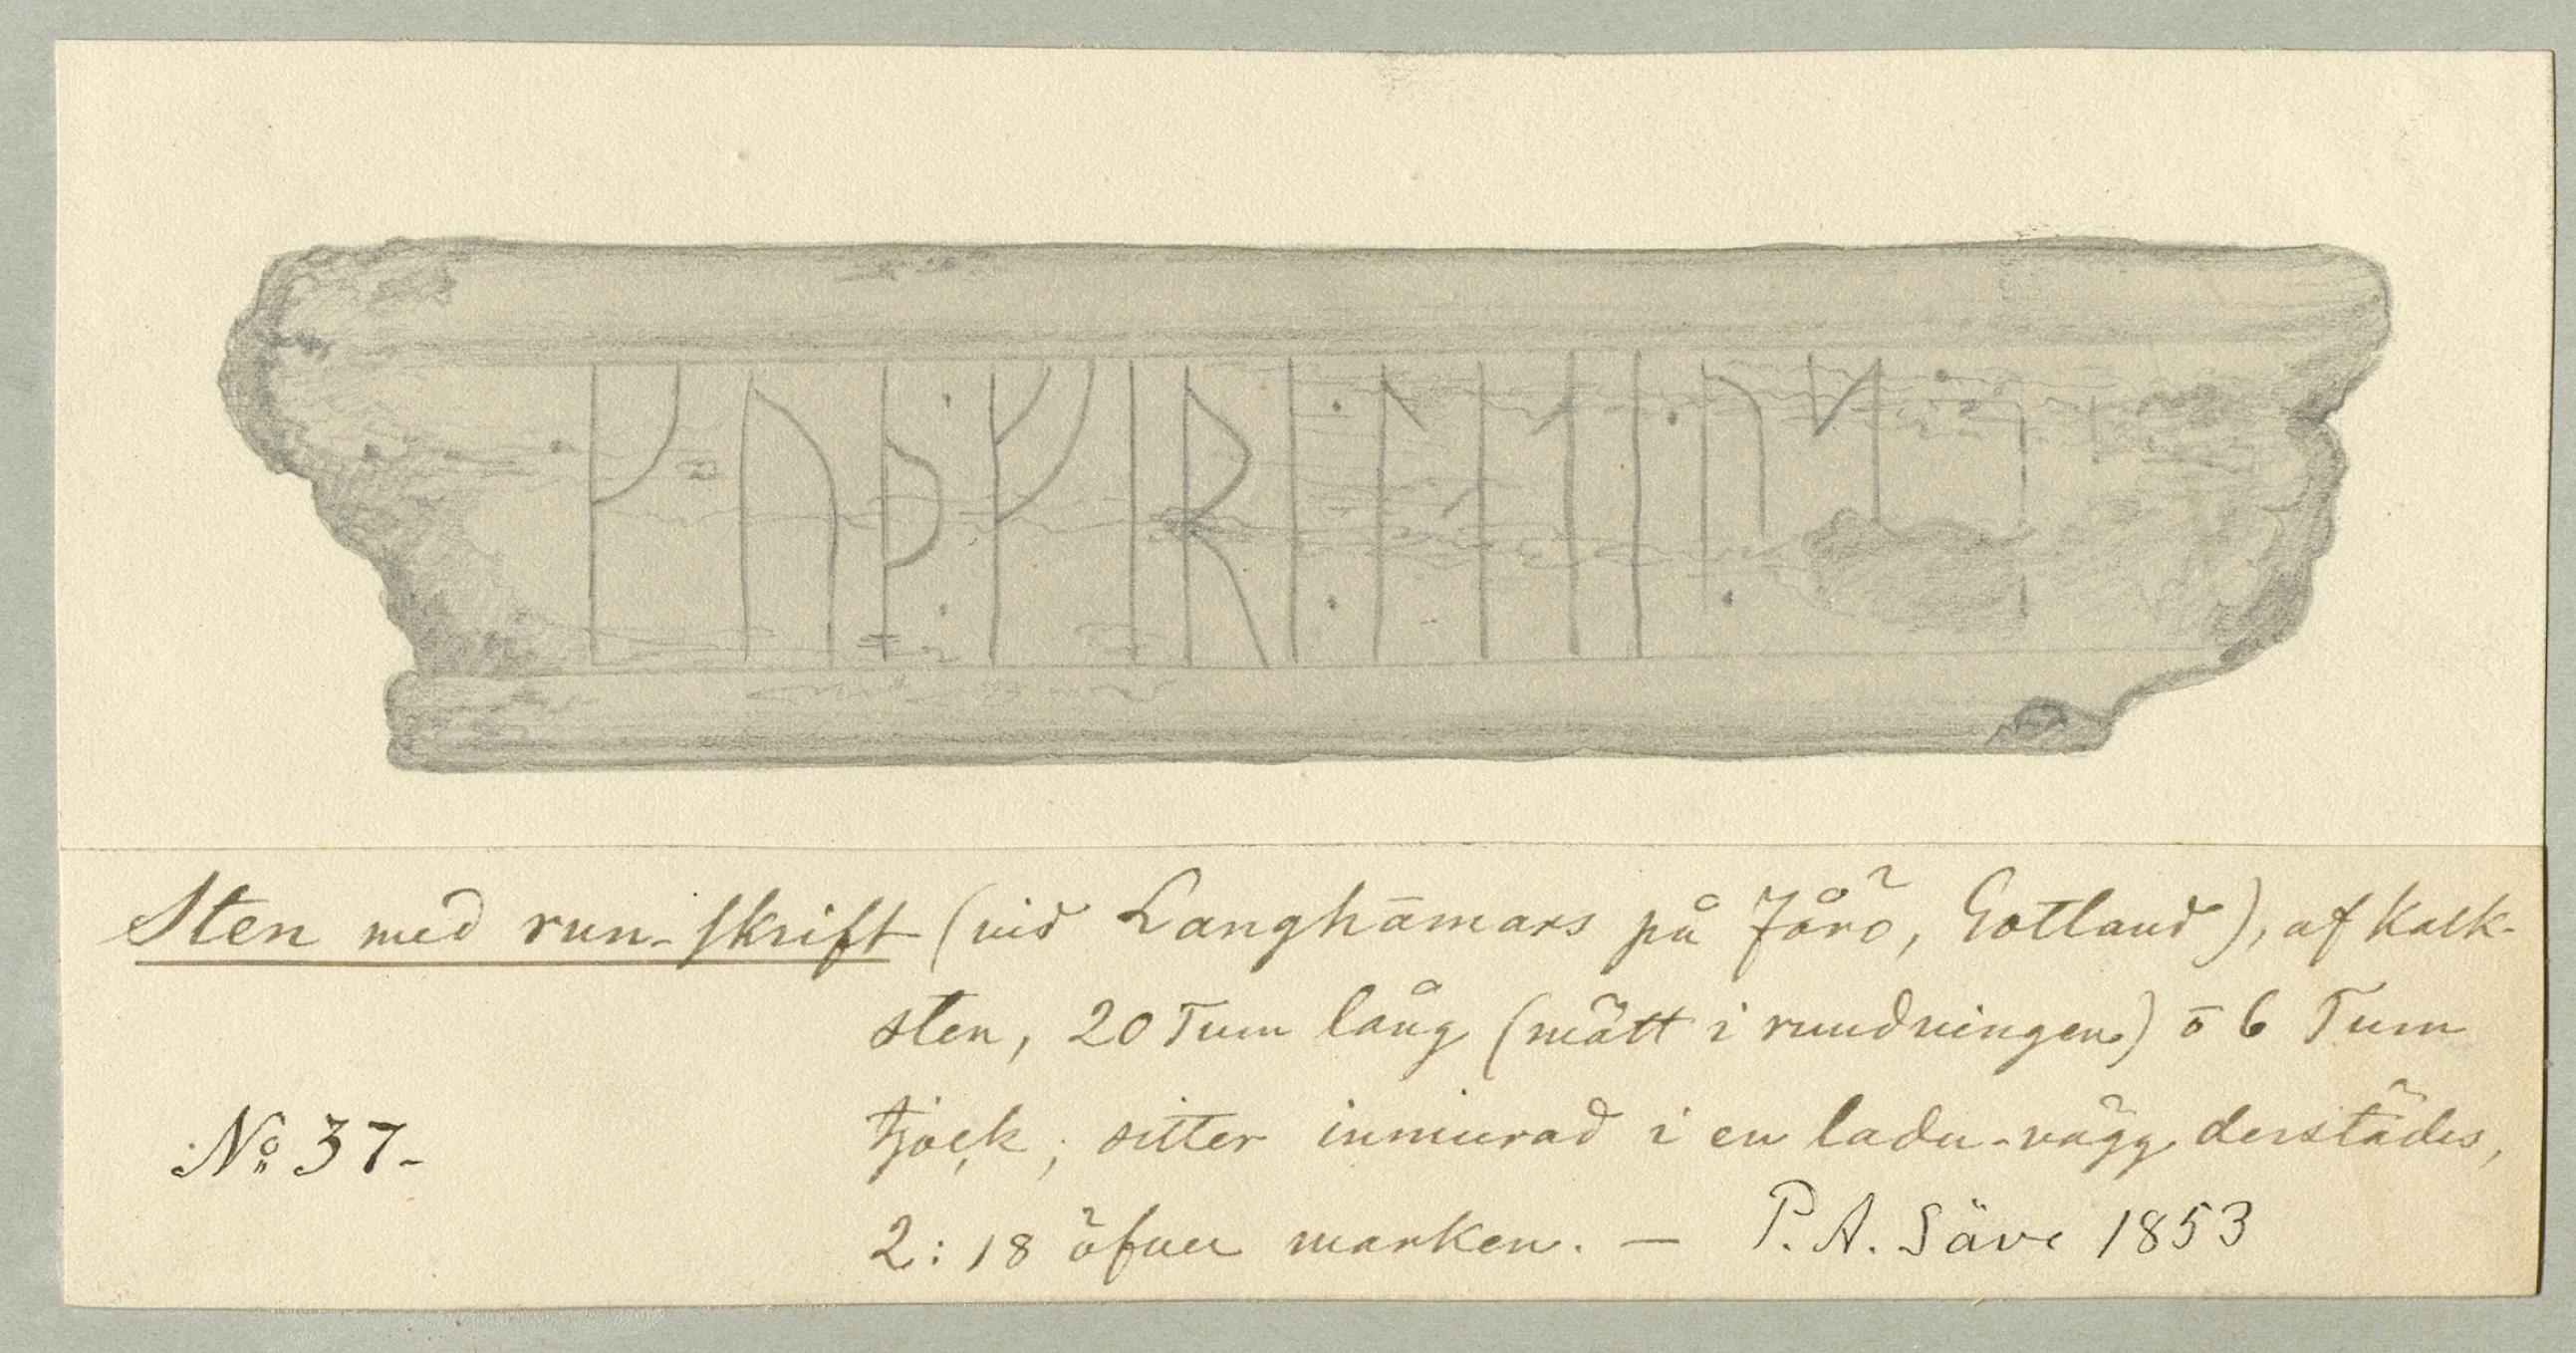 ᚴᚢᚦ : ᚠᛁᚱᛁ : ᛚᛁᛐᛁ : ᚢᛋ
Sten med run-skrift (vid Langhāmars på Fårö, Gotland), af Kalk-
sten, 20 Tum lång (mätt i rundningen) ō 6 Tum
tjock; sitter inmurad i en ladu-vägg derstädes,
2:18 öfver marken. — P. A. Säve 1853
No 37-